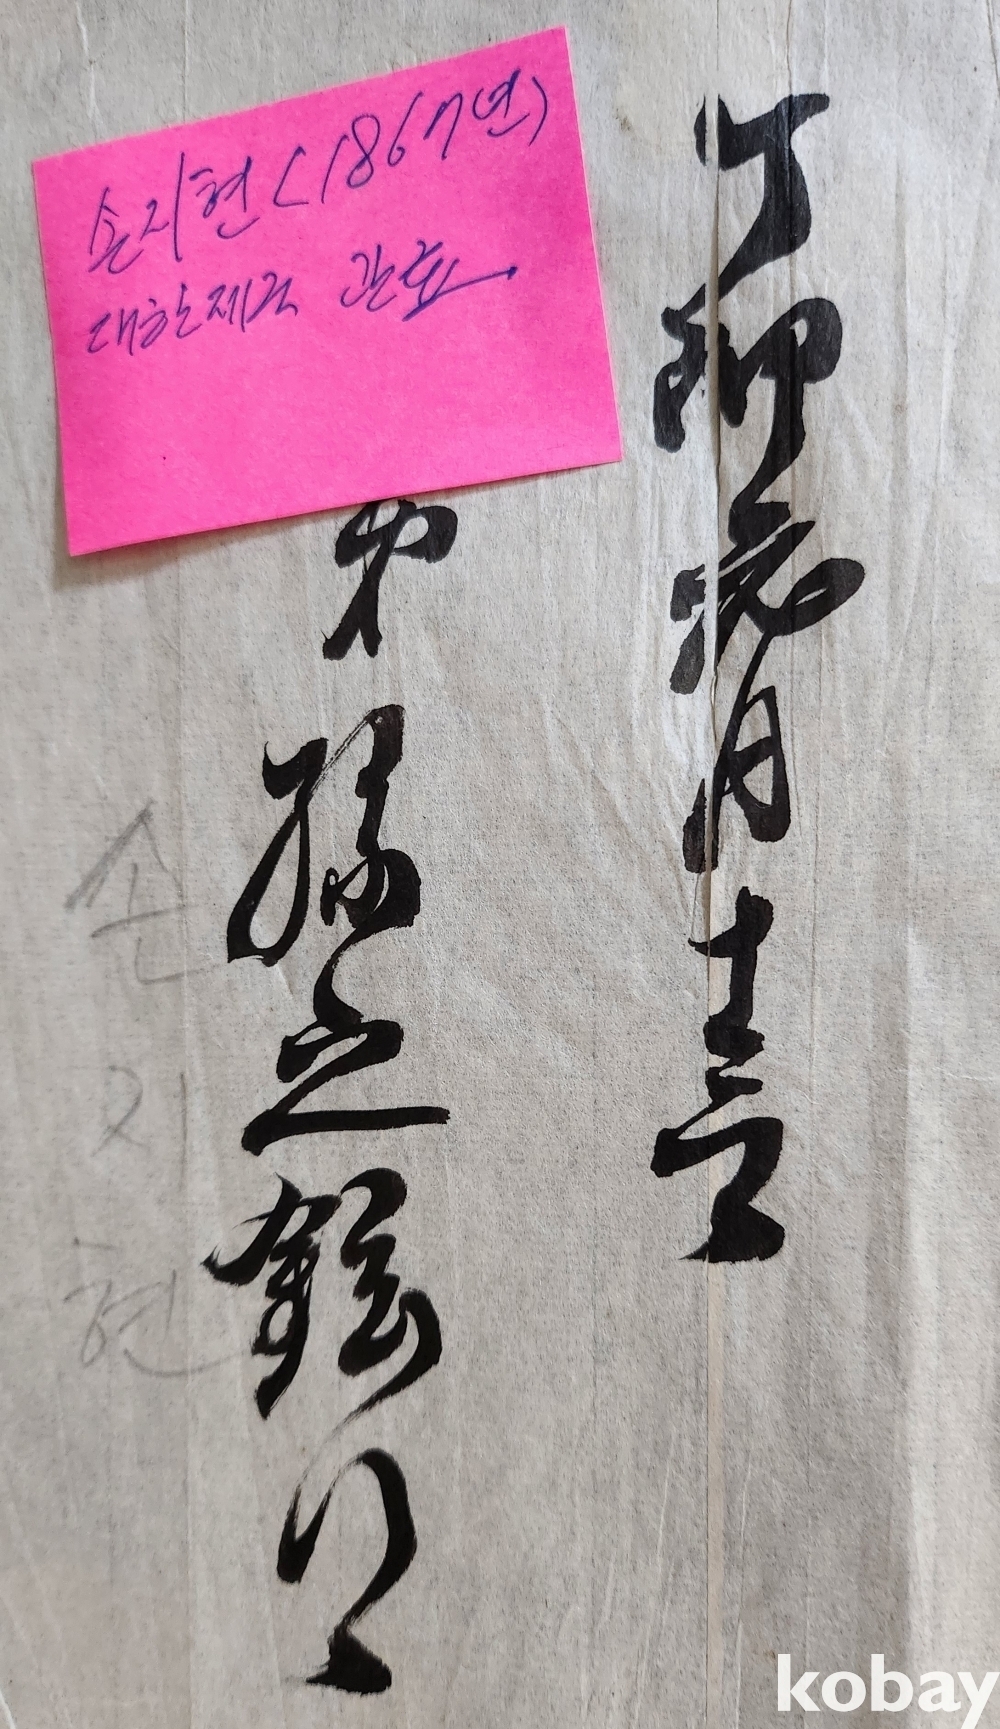 손지현 (1867년)
대한제국 관료
丁卯 月十
弟 孫之鉉
손지현
kobay